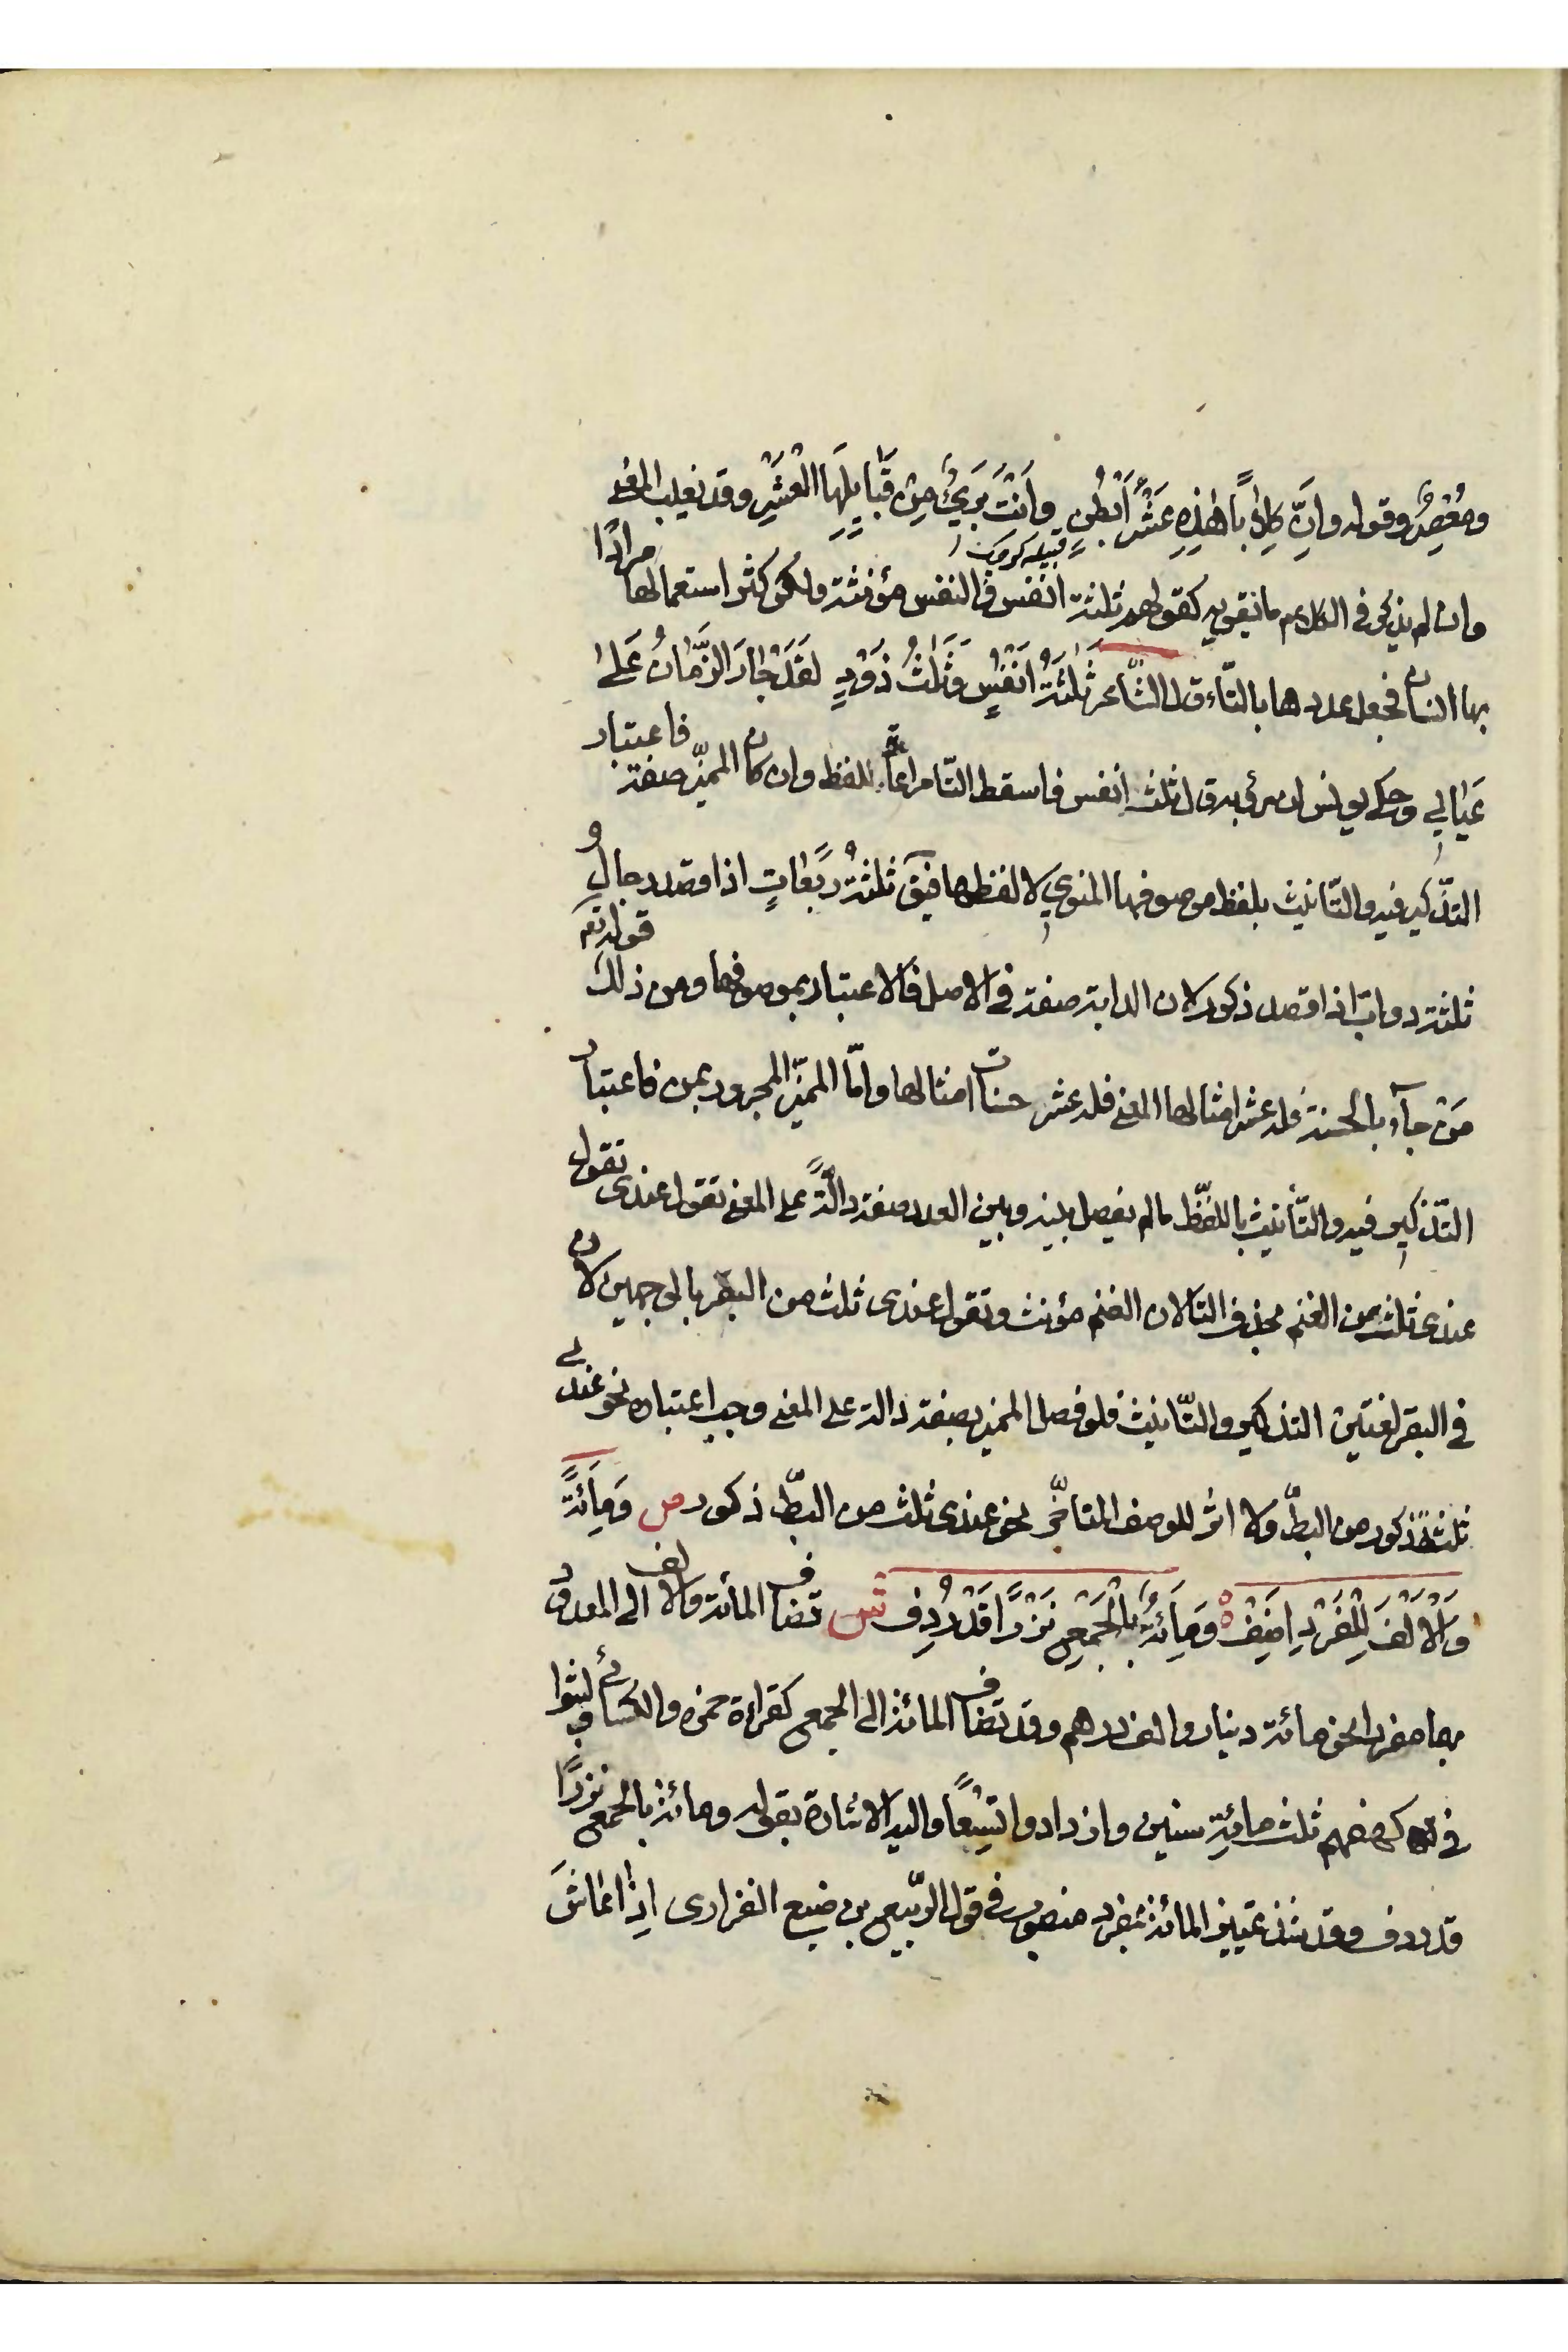 ومُعْصِرُ وقوله وَاِنَّ كِلٰابًا هٰذِهِ عَشْرُ اَبْطُنٍ وَاَنْتَ بَرَیٌٔ مِنْ قَبٰایِلِهَا الْعَشْرِ وقد یغلب المعنی
وان لم یذکر فی الکلام ما یقویه کقولهم ثلثة انفس فالنفس مؤنثة ولکن کثر استعمالها مرادًا
بها انسان فجعل عددها بالتّاء قال الشّاعر ثَلٰثَةُ اَنْفُسٍ وَثَلٰثُ ذَوْدٍ لَقَدْ جٰارَ الزَّمٰانُ عَلٰی
عَیٰالِی وحکی یونس ان رؤبه قال ثلث انفس فاسقط التّا مراعاة للفظ وان کان الممیّز صفة فاعتبار
التذّکیر فیه والتّانیث بلفظ موصوفها المنوی لا لفظها فیق ثلثةُ ربعاتٍ اذا قصد رجالٌ و
ثلثة دوابّ اذا قصد ذکور لان الدابة صفة فی الاصل فالاعتبار بموصوفها ومن ذلک قوله تع
مَنْ جآء بالحسنة فله عشر امثالها المعنی فله عشر حسنات امثالها وامّا الممیّز المجرور بمن فاعتبار
التّذکیر فیه والتّأنیث باللفّظ مالم یفصل بینه وبین العدد صفة دالّةً علی المعنی تقول عندی تقول
عندی ثلث من الغنم بحذف التا لان الغنم مؤنث وتقول عندی ثلث من البقر بالوجهین لان
فی البقر لغتین التذکیر والتّانیث فلو فصل الممیز بصفة دالة علی المعنی وجب اعتباره نحو عندی
ثلثة ذکور من البطّ ولا اثر للوصف المتاخّر نحو عندی ثلث من البطّ ذکور ص وَمِاَئَةً
وَاْلاَلْفَ لِلْفَرْدِ اَضِفْ وَمِاَئَةٌ بِالْجَمْعِ نَزْرًا قَدْ رُدِف ش تضاف المائة والالف الی المعدود
بهما مفردا نحو مائة دینار والف درهم وقد تضاف المائة الی الجمع کقراءة حمزه والکسائی ولبثوا
فی کهفهم ثلث مائةِ سنین وازدادوا تِسْعًا والیه الاشارة بقوله ومائة بالجمع نزرًا
قد ردف وقد شذ تمییز المائة بمفرد منصوب فی قول الرّبیع بن ضبع الفزاری اِذٰا عٰاشَ